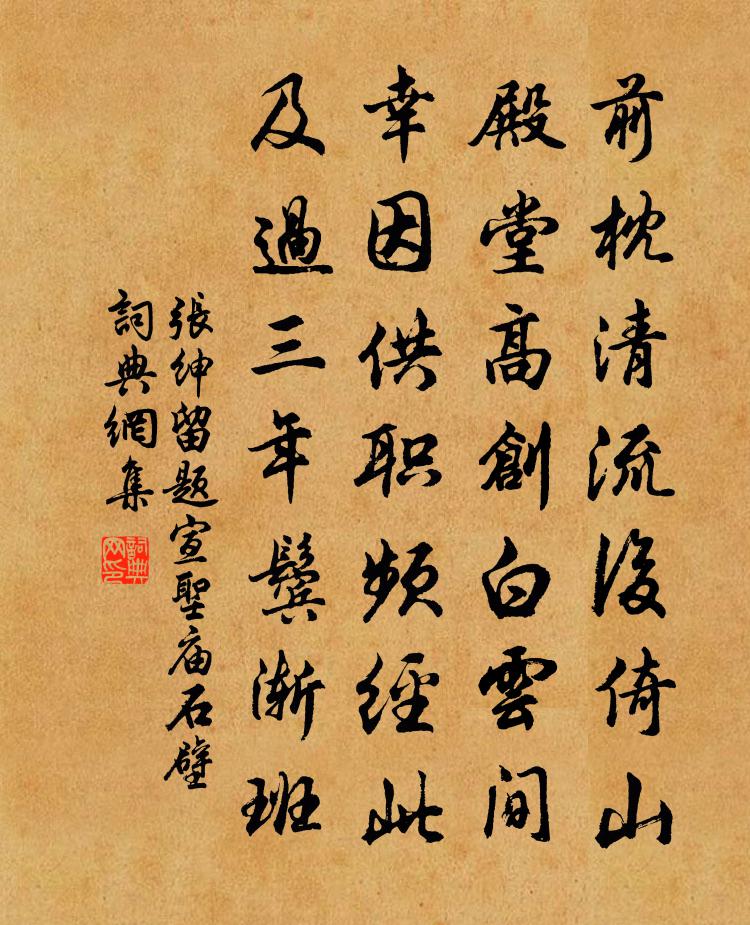 前枕清流後倚山
殿堂高創白雲間
幸因供职頻經此
及過三年鬓渐班
張紳留題宣聖庙石壁
詞典網集
詞典网印